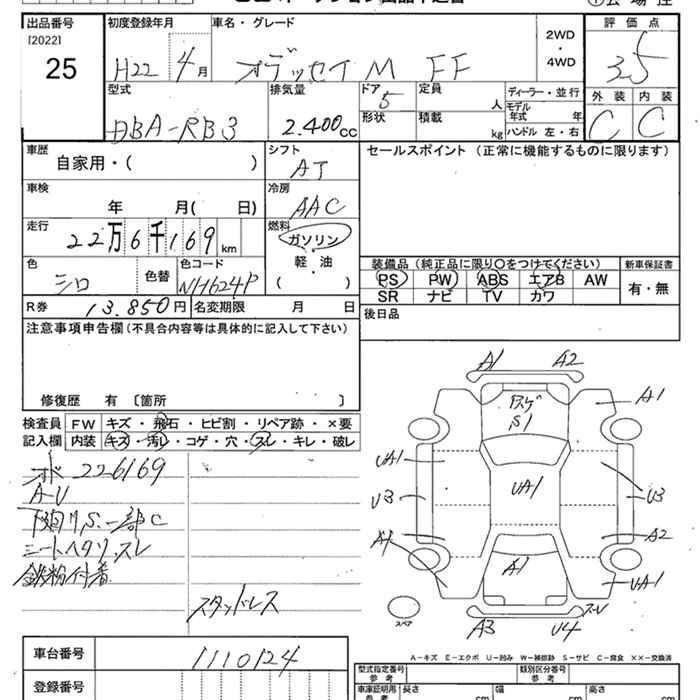 出品番号
[2022]
25
初度登録年月
H22 4月
車名・グレード
オデッセイ M FF
2WD
・
4WD
評価点
3.5
外装 内装
C C
型式
DBA-RB3
排気量
2.400cc
ドア
5
形状
定員
人
積載
kg
ディーラー・並行
モデル年式 年
ハンドル 左・右
車歴
自家用・( )
シフト
AT
セールスポイント (正常に機能するものに限ります)
車検
年 月( 日)
冷房
AAC
走行
22万6千169km
燃料
ガソリン
・
軽・油
( )
色
シロ
色替
色コード
NH624P
装備品(純正品に限り○をつけてください)
PS PW ABS エアB AW
SR ナビ TV カワ
新車保証書
有・無
R券 13.850円
名変期限 月 日
後日品
注意事項申告欄(不具合内容等は具体的に記入して下さい)
修復歴 有 〔箇所 〕
検査員
記入欄
FW キズ・飛石・ヒビ割・リペア跡・×要
内装 キズ・汚レ・コゲ・穴・スレ・キレ・破レ
オド 226169
A-U
下回りS.一部C
シートヘタリ.スレ
鉄粉付着
スタッドレス
A1 A2
A1
S1
UA1
U3
UA1
U3
A1
A2
A1
UA1
A3 U4
スペア
A-キズ E-エクボ U-凹み W-補修跡 S-サビ C-腐食 ××-交換済
車台番号
1110124
登録番号
型式指定番号
類別区分番号
車庫証明用
参考
長さ cm
幅 cm
高さ cm